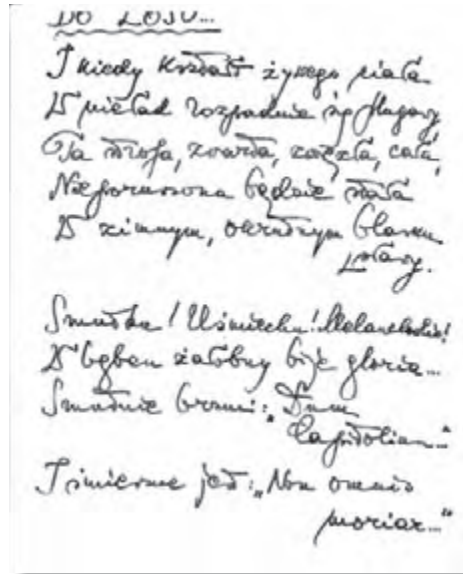 DO LOSU...
I kiedy kształt żywego ciała
W nieład rozpadnie się plugawy
Ta strofa, zwarta, zwięzła, cała,
Nieporuszona będzie stała
W zimnym, okrutnym blasku
sławy.
Smutku! Uśmiechu! Melancholio!
W bęben żałobny bije gloria...
Smutnie brzmi: „Dum
Capitolium..."
I śmieszne jest: „Non omnis
moriar..."